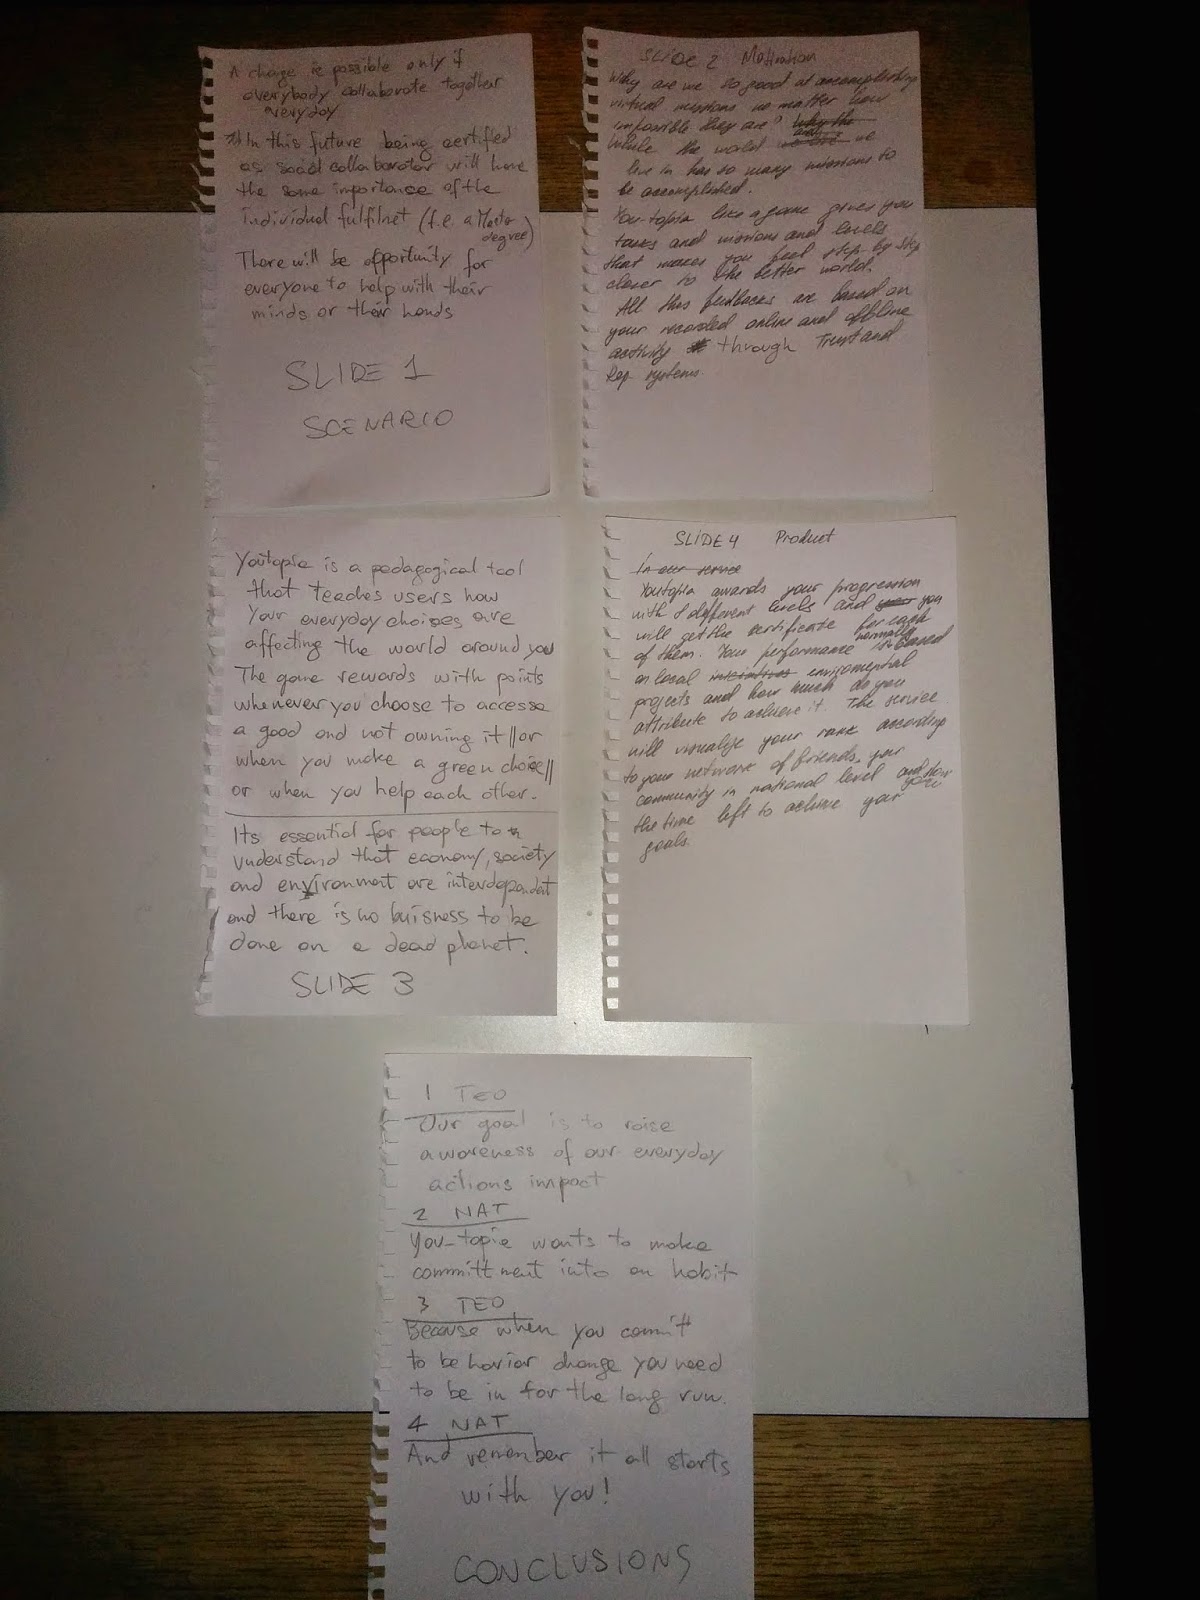 A change is possible only if
everybody collaborate together
everyday
In this future being certified
as social collaborator will have
the same importance of the
individual fulfilnet (f.e. a Master
degree)
There will be opportunity for
everyone to help with their
minds or their hands
SLIDE 1
SCENARIO
SLIDE 2 Motivation
Why are we so good at accomplishing
virtual missions no matter how
impossible they are? why the
While the world and we
live in has so many missions to
be accomplished.
You-topia like a game gives you
tasks and missions and levels
that makes you feel step by step
closer to the better world.
All this feedbacks are based on
your recorded online and offline
activity through Trust and
Rep. systems.
Youtopia is a pedagogical tool
that teaches users how
your everyday choices are
affecting the world around you
The game rewards with points
whenever you choose to access
a good and not owning it || or
when you make a green choice ||
or when you help each other.
Its essential for people to
understand that economy, society
and environment are interdependent
and there is no buisness to be
done on a dead planet.
SLIDE 3
SLIDE 4 Product
In our service
Youtopia awards your progression
with 8 different levels and your you
will get the certificate for each
of them. Your performance normally is based
on local iniciatives enviromental
projects and how much do you
attribute to achieve it. The service
will visualize your rank according
to your network of friends, your
community in national level and show you
the time left to achieve your
goals.
1 TEO
Our goal is to raise
awareness of our everyday
actions impact
2 NAT
You-topie wants to make
committment into an habit
3 TEO
Because when you committ
to behavior change you need
to be in for the long run.
4 NAT
And remember it all starts
with you!
CONCLUSIONS